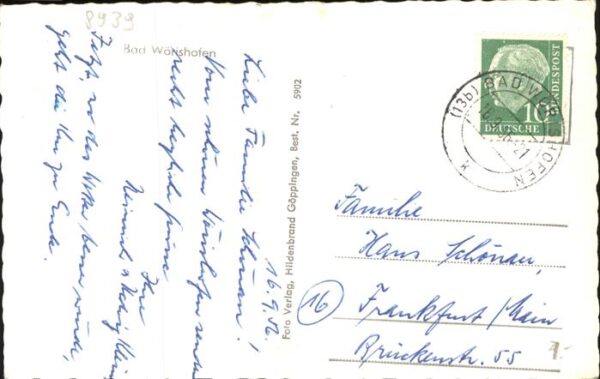 8939
Bad Wörishofen
16.9.56.
Liebe Familie Schönau!
Vom schönen Wörishofen senden
recht herzliche Grüsse
Ihre
Heinrich u. Hedwig
Jetzt, wo das Wetter besser wurde,
geht die Kur zu Ende.
Foto Verlag, Hildenbrand Göppingen, Best. Nr. 5902
10
DEUTSCHE
BUNDESPOST
(13b) BAD WÖRISHOFEN
Familie
Hans Schönau,
16
Frankfurt/Main
Brückenstr. 55